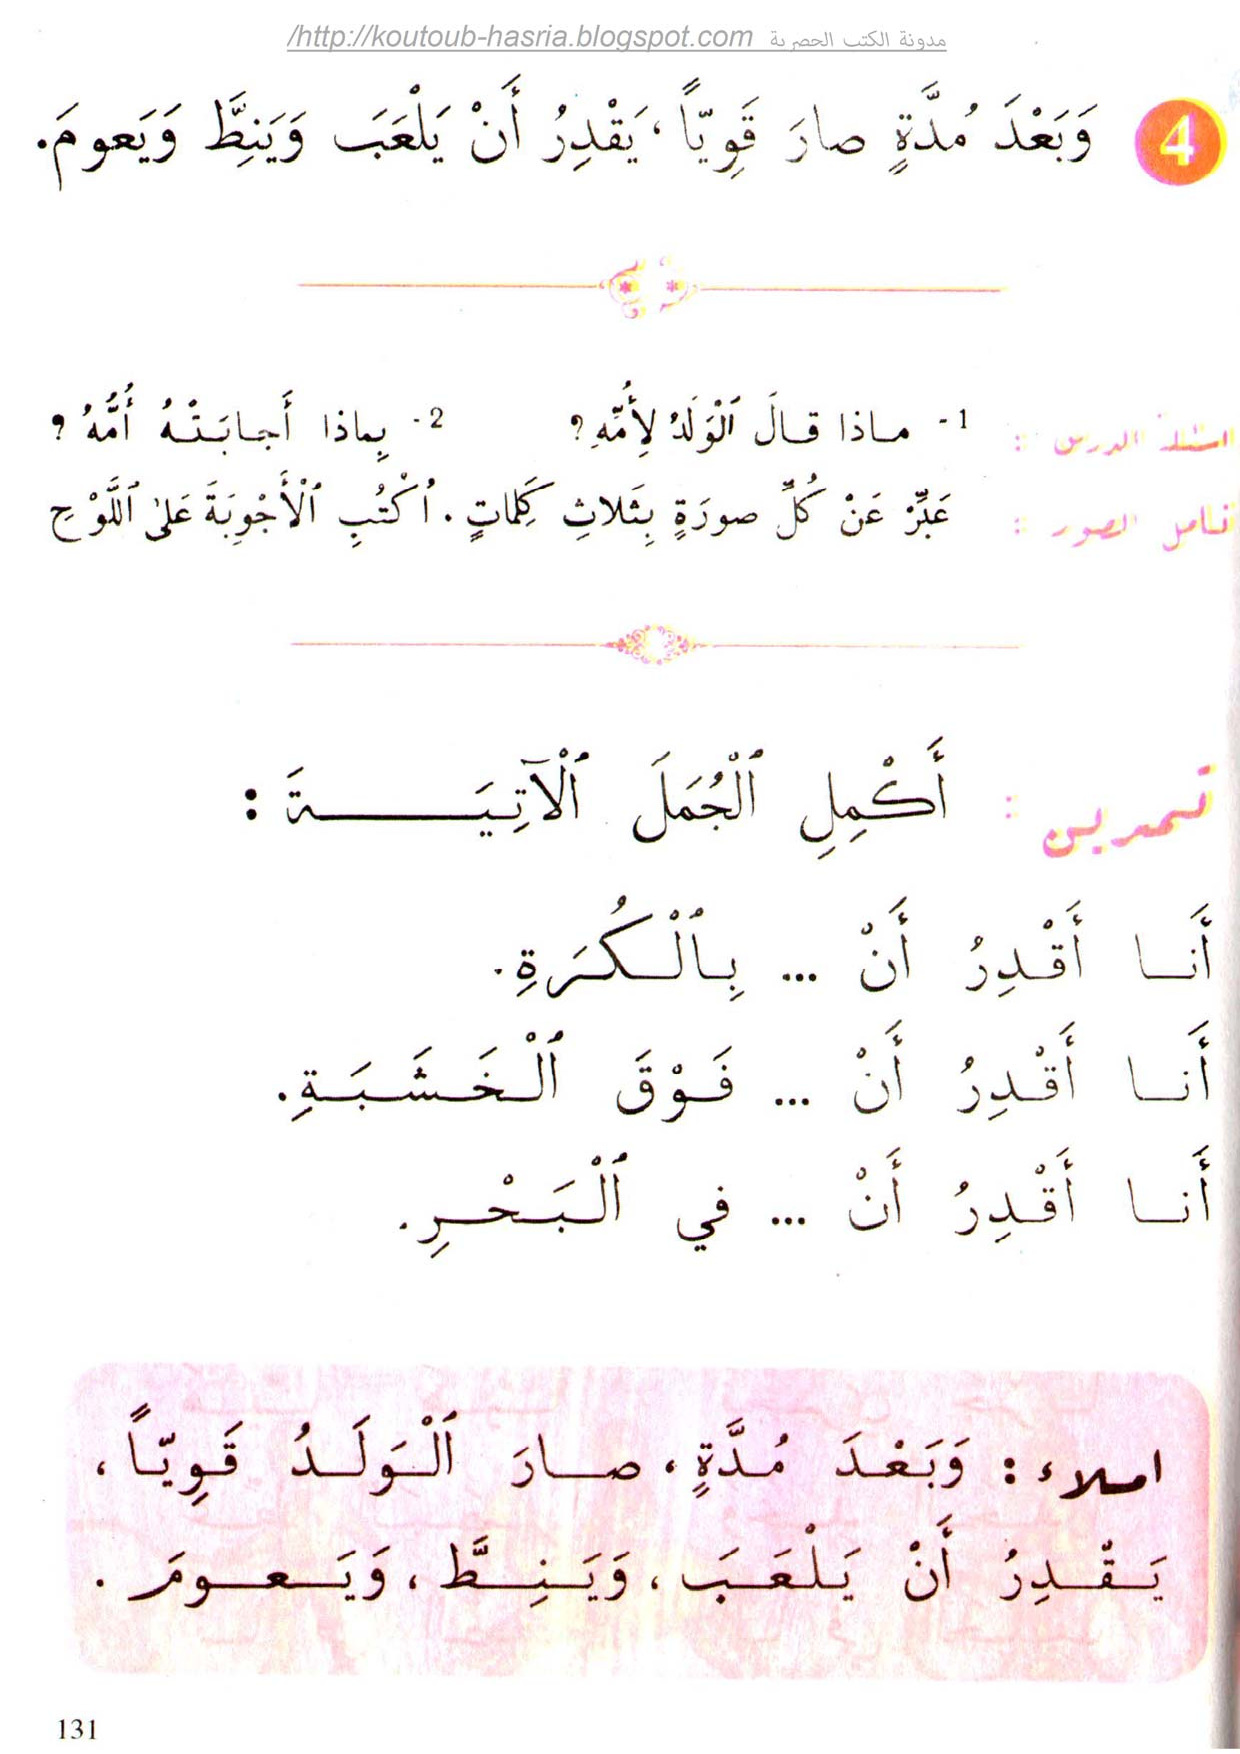 مدونة الكتب الحصرية http://koutoub-hasria.blogspot.com/
4 وَبَعْدَ مُدَّةٍ صارَ قَوِيّاً، يَقْدِرُ أَنْ يَلْعَبَ وَيَنِطَّ وَيَعومَ.
اسئلة الدرس : 1- ماذا قالَ ٱلْوَلَدُ لِأُمِّهِ؟ 2- بِماذا أَجابَتْهُ أُمُّهُ ؟
تامل الصور : عَبِّرْ عَنْ كُلِّ صورَةٍ بِثَلاثِ كَلِماتٍ. اُكْتُبِ ٱلْأَجْوِبَةَ عَلىٰ ٱللَّوْحِ
تمرين : أَكْمِلِ ٱلْجُمَلَ ٱلْآتِيَةَ :
أَنا أَقْدِرُ أَنْ ... بِٱلْكُرَةِ.
أَنا أَقْدِرُ أَنْ ... فَوْقَ ٱلْخَشَبَةِ.
أَنا أَقْدِرُ أَنْ ... في ٱلْبَحْرِ.
املاء : وَبَعْدَ مُدَّةٍ، صارَ ٱلْوَلَدُ قَوِيّاً،
يَقْدِرُ أَنْ يَلْعَبَ، وَيَنِطَّ، وَيَعومَ.
131